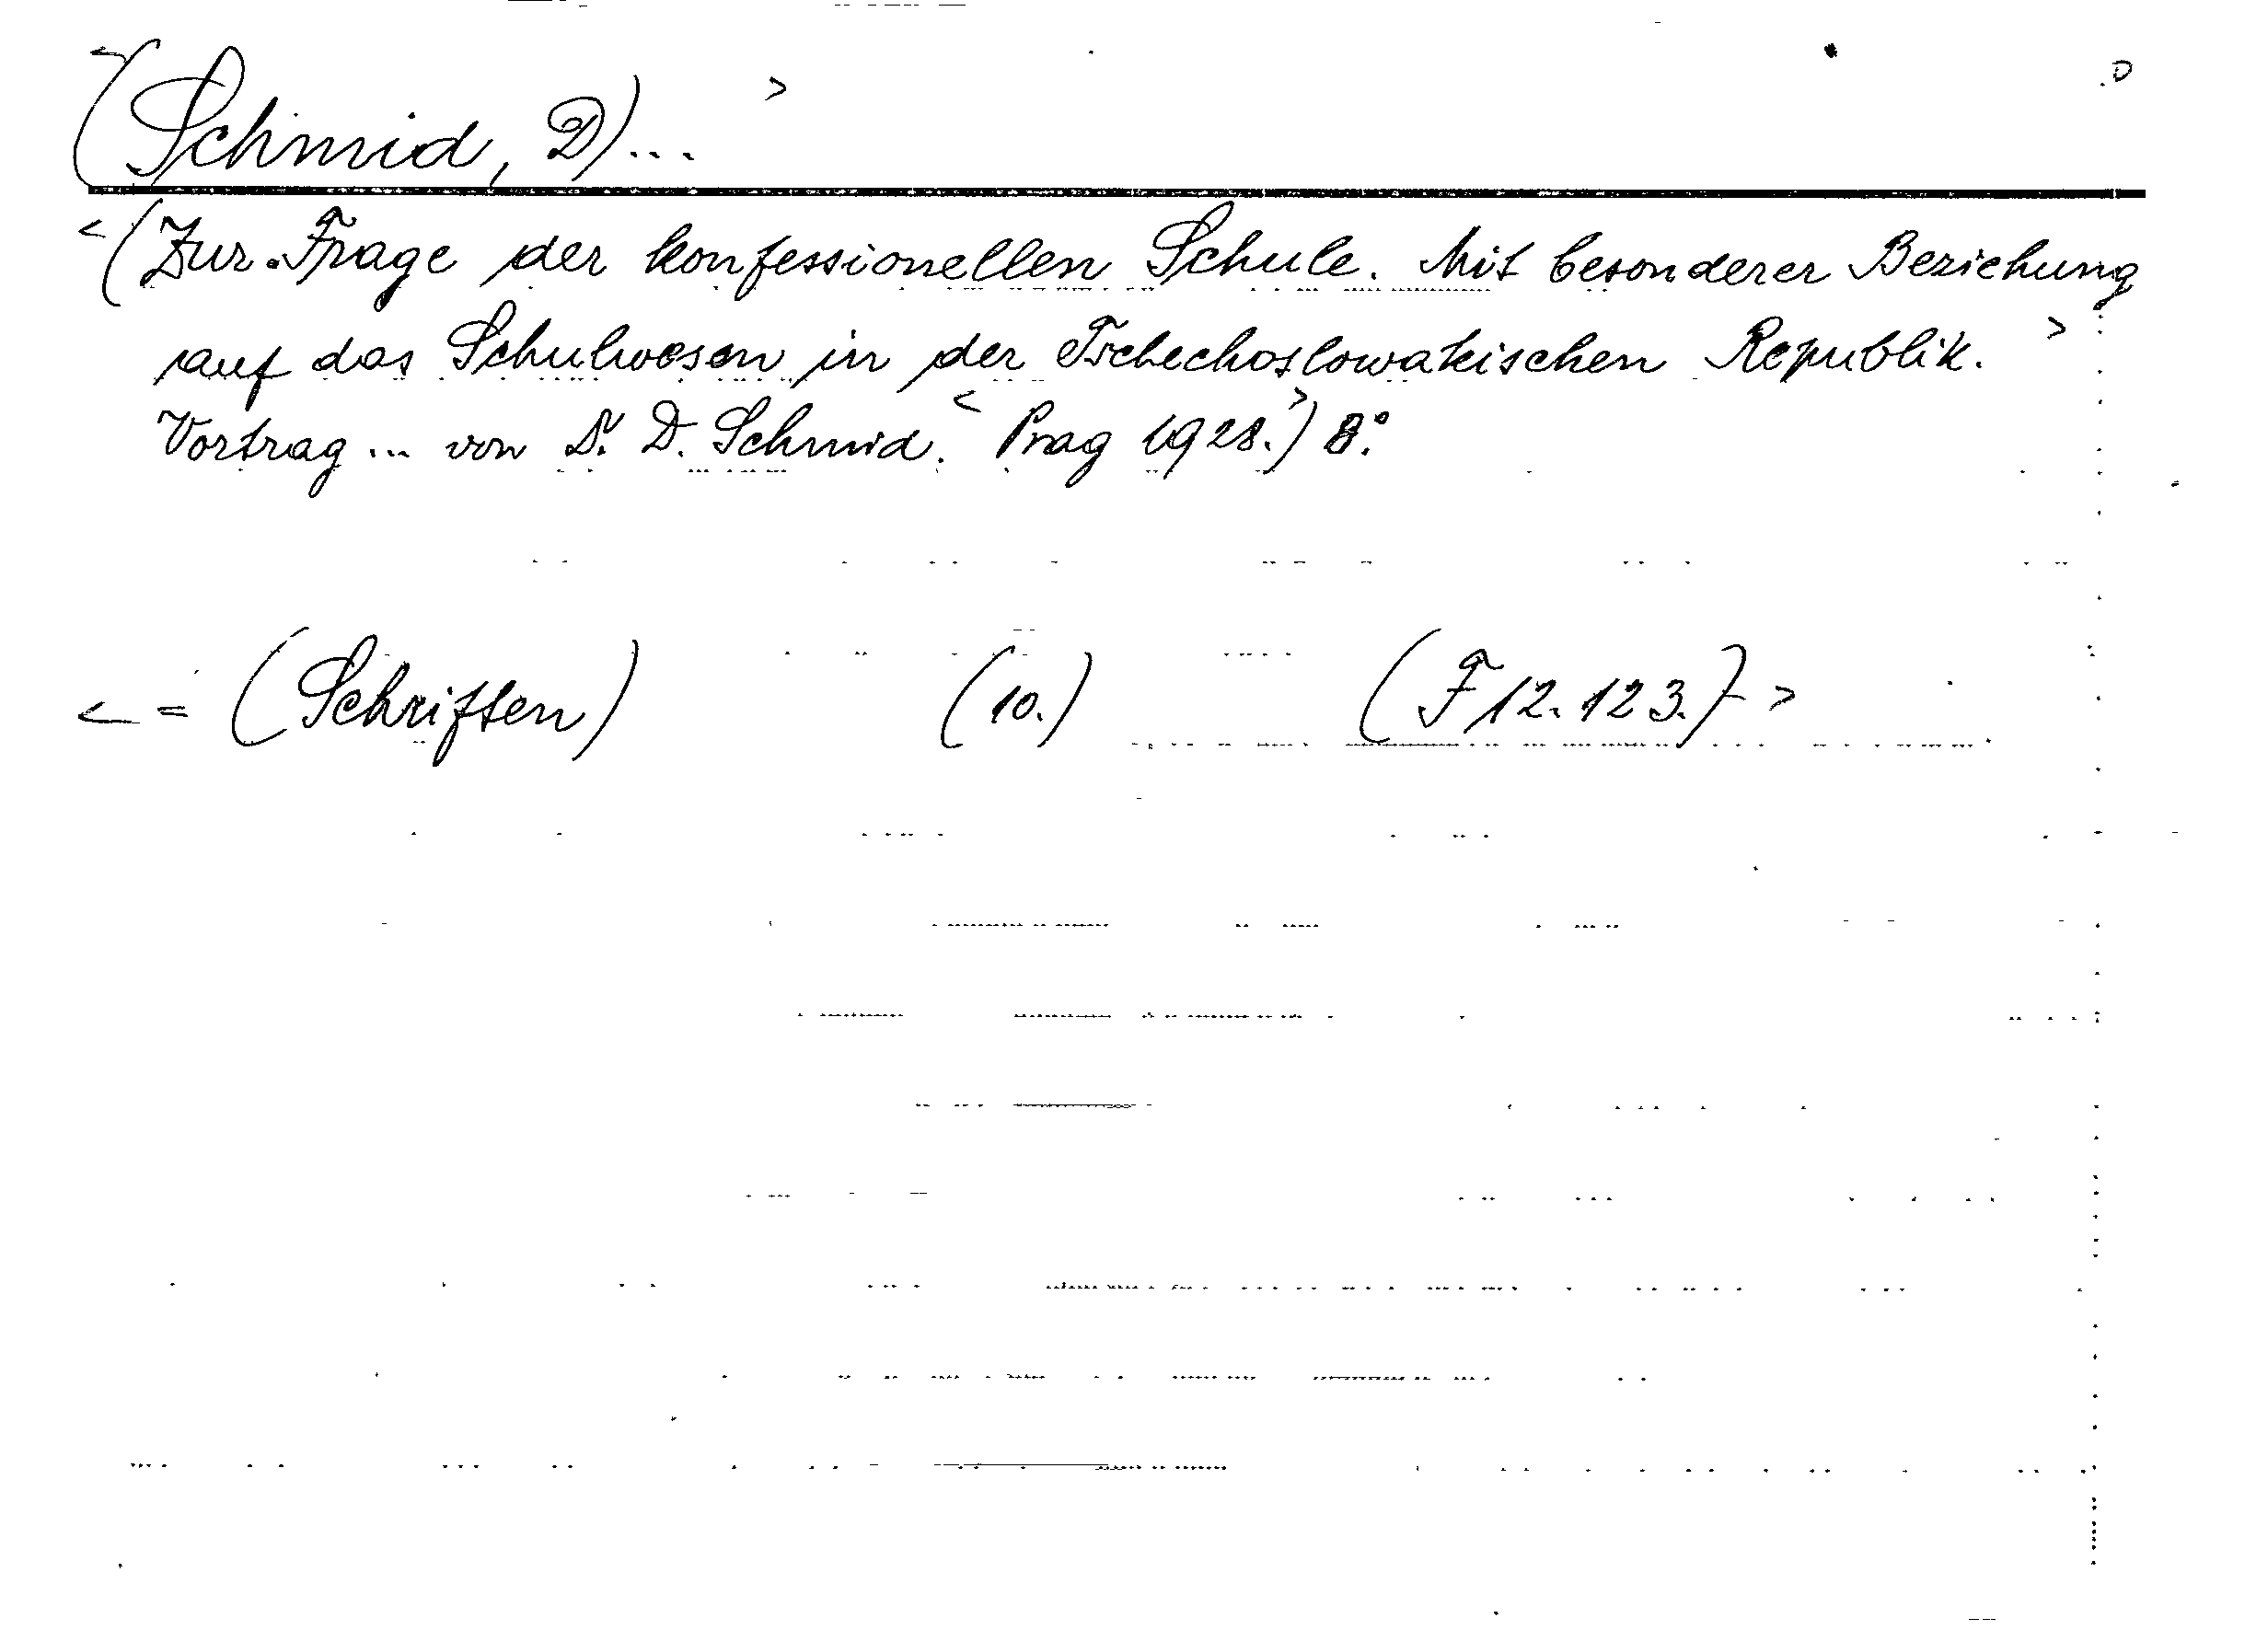 <(Schmid, D)... >
<(Zur Frage der konfessionellen Schule. Mit besonderer Beziehung
auf das Schulwesen in der Tschechoslowakischen Republik. >
Vortrag ... von Dr. D. Schmid. < Prag 1928.>) 8°.
< = (Schriften) (10.) (F 12.123.) >